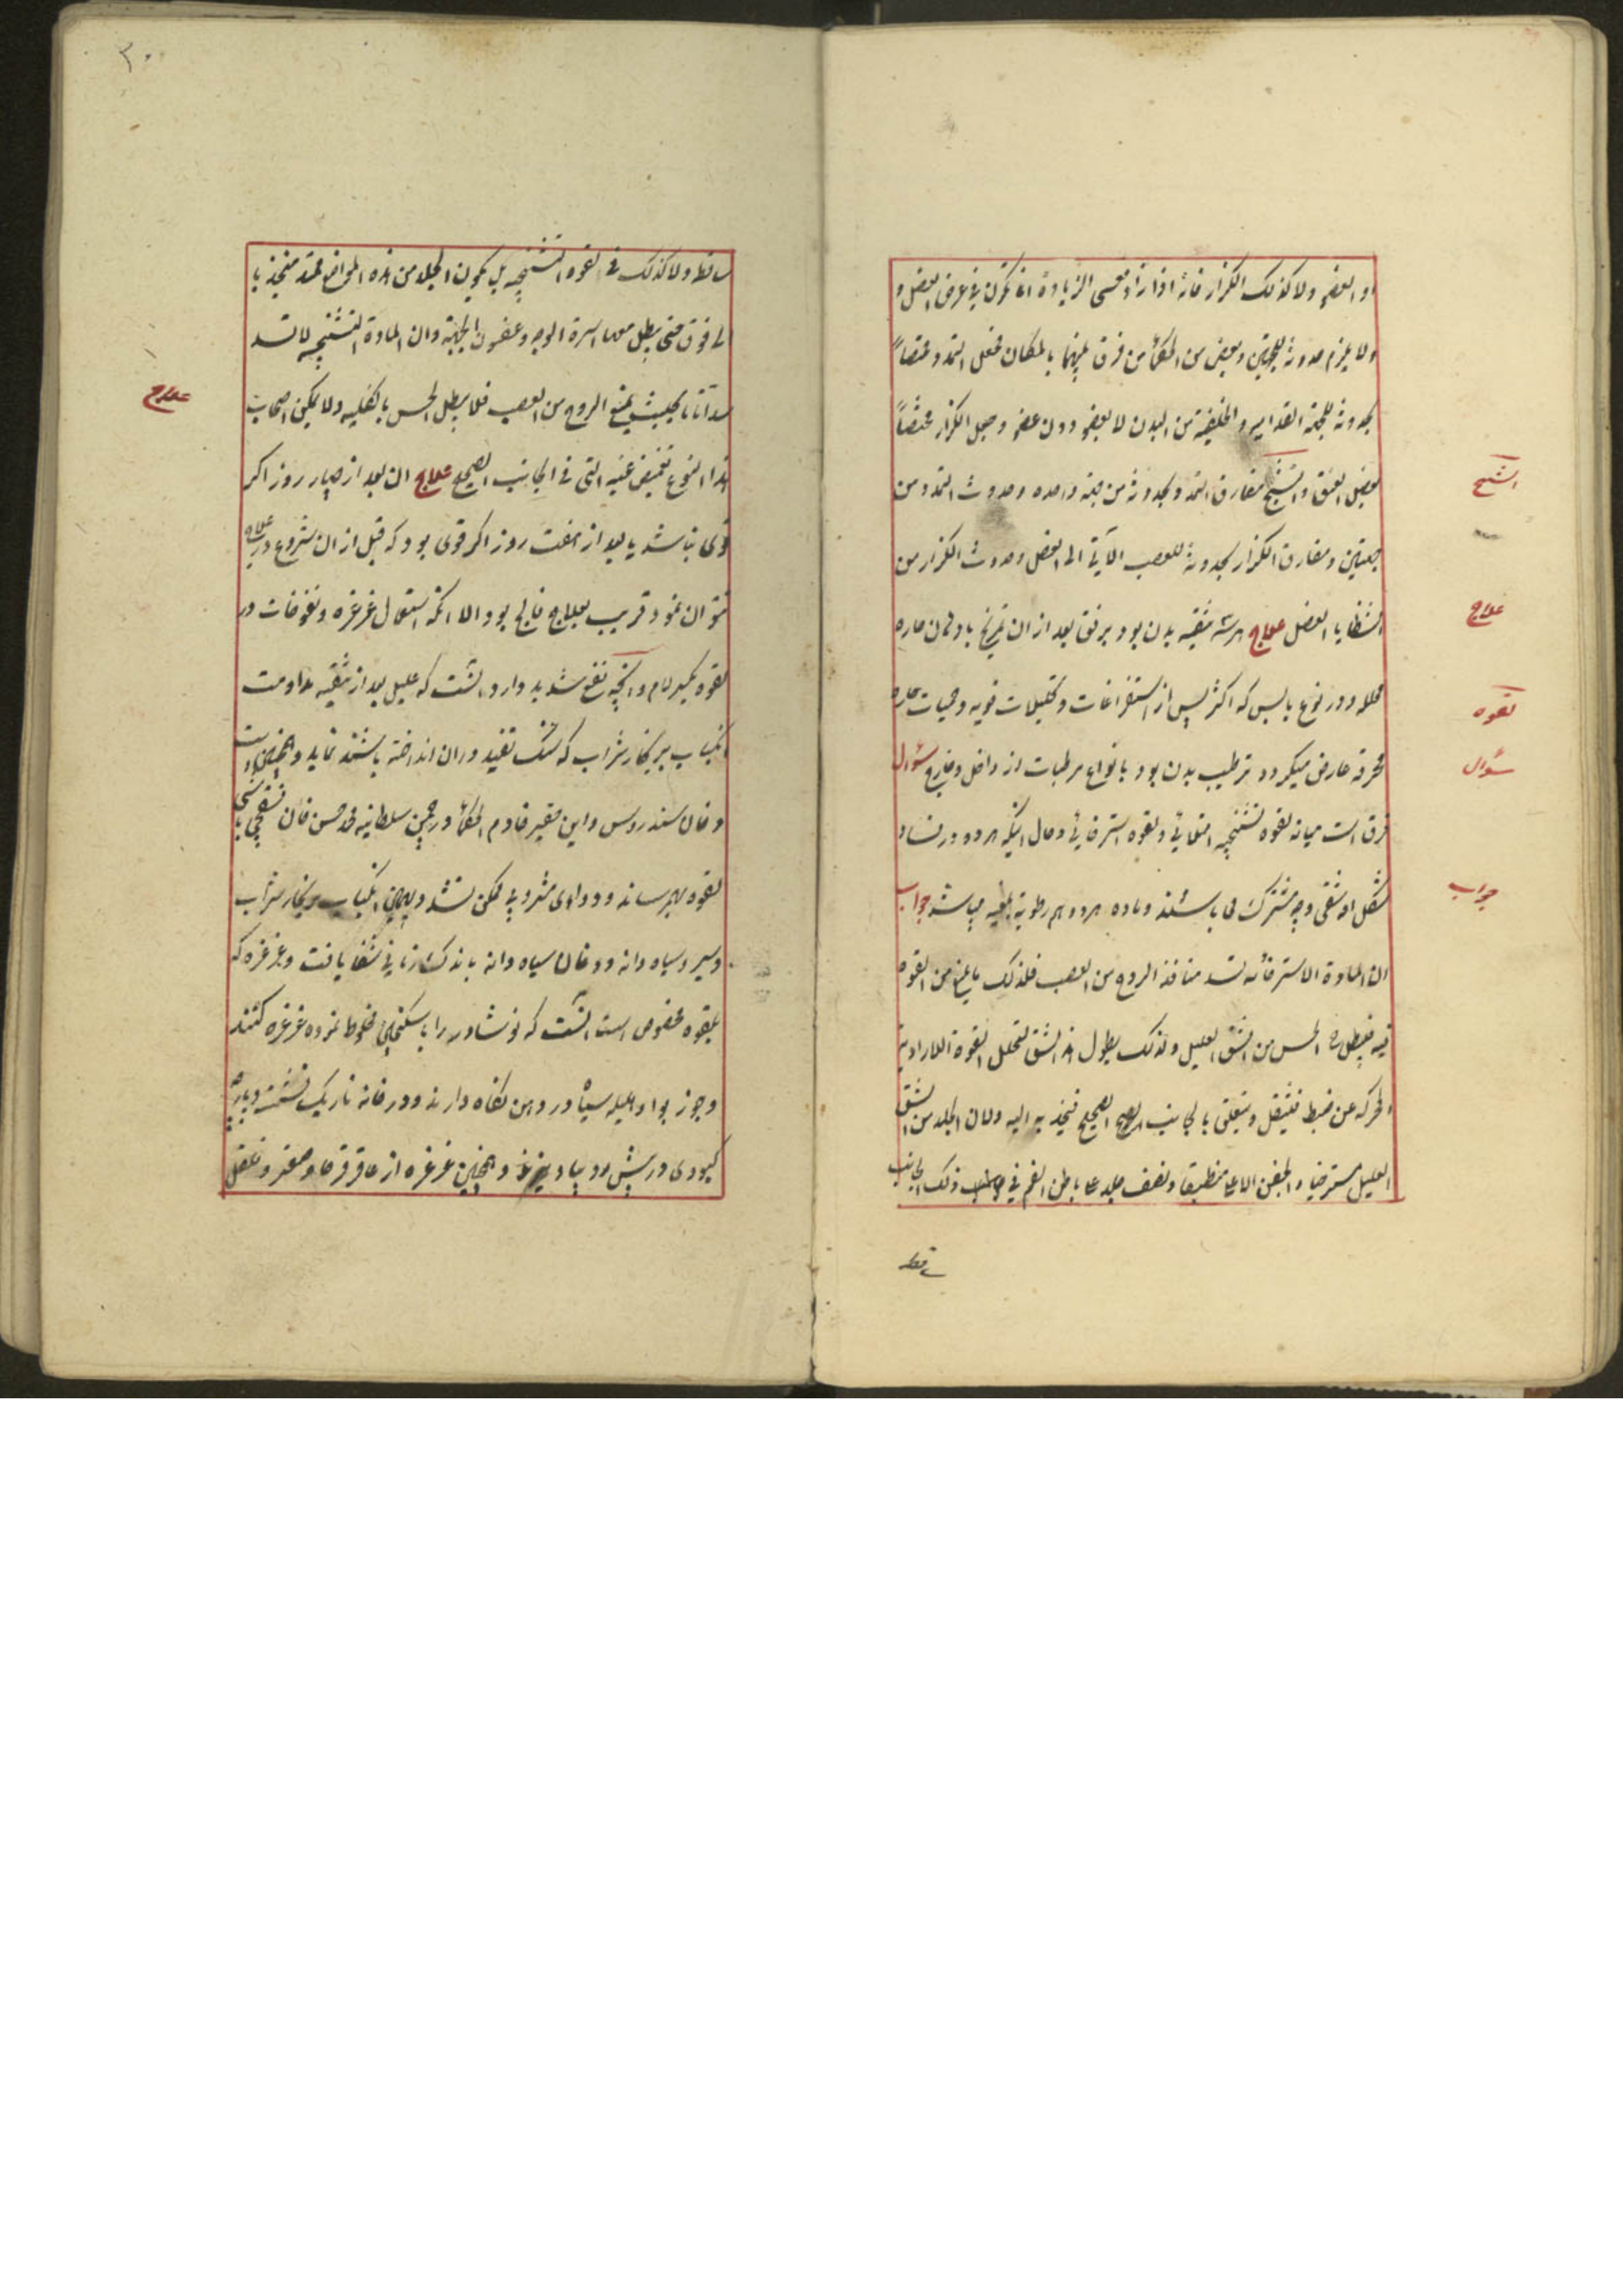 او العضو ولا كذلك الكزاز فانه اذا زاد فمسى الزيادة انما تكون في عرض العضل و
ولا يلزم حدوثه للجهتين وبعض من الحكماء من فرق بينهما بالمكان فجعل التمدد مختصاً
بحدوثه للجهة القدامية والخلفية من البدن لا بعضو دون عضو وجعل الكزاز مختصاً
بعضل العنق والتشنج مفارق التمدد بحدوثه من جهة واحده وحدوث التمدد من
التشنج
جهتين ومفارق الكزاز بحدوثه للعصب الآتي الى العضل وحدوث الكزاز من
الشظايا العضل علاج هر سه تنقيه بدن بود برفق بعد از ان تمريخ بادهان حاره
علاج
محلله ودر نوع يابس كه اكثر پس از استفراغات وتحليلات قويه وحميات حاره
لقوه
محرقه عارض ميكردد ترطيب بدن بود بانواع مرطبات از داخل وخارج سؤال
سؤال
فرق است ميانه لقوه تشنجيه امتلائي ولقوه استرخائي وحال اينكه هر دو در فساد
شكل او شقى وجه مشترك مى باشند وماده هر دو هم رطوبة بلغميه ميباشد جواب
جواب
ان المادة الاسترخائيه تسد منافذ الروح من العصب فلذلك مايمنع من القوه
فيه فيبطل الحس من الشق العليل ولذلك يطول هذا الشق لتحلل القوة الارادية
الحركه عن ضبط فيثقل ويتعلق بالجانب الصحيح فيجذبه اليه ولان الجلد من الشق
العليل مسترخيا والجفن الاعلا منطبقا ونصف جلد على باطن الفم في ذلك الجانب
ساقط
٣٠
ساقط ولا كذلك فى لقوه التشنجيه بل يكون الجلد من هذه المواضع ممتد منجذبا
الى فوق حتى يبطل معه اسرة الوجه وغضون الجبهة وان المادة التشنجيه لا تسد
سداً تاما بحيث يمنع الروح من العصب فلا يبطل الحس بالكليه ولا يمكن اصحاب
علاج
هذا النوع تغميض عينيه التى فى الجانب الصحيح علاج ان بعد از چهار روز اكر
قوى نباشد يا بعد از هفت روز اكر قوى بود كه قبل از ان شروع در علاج
نتوان نمود قريب بعلاج فالج بود الا انكه استعمال غرغره ونفوخات در
لقوه بكسر لام وانچه نفع شديد دارد انست كه عليل بعد از تنقيه مداومت
انكباب بر بخار شراب كه سنك تفيد دران انداخته باشند نمايد وهمچنين است
دخان سندروس واين حقير خادم الحكماء در چمن سلطانيه محمد حسن خان تفنكچى باشى
لقوه بهم رسانده ودواى مشروبه ممكن نشد وبهمين انكباب بر بخار شراب
وسير وسياه دانه ودخان سياه دانه باندك زمانى شفا يافت وغرغره كه
بلقوه مخصوص است انست كه نوشادر را با سكنجبين مخلوط نموده غرغره كنند
وجوز بوا وهليله سياه در دهن نكاه دارند ودر خانه تاريك نشستن وپارچه
كبودى در پيش رو بياويزند وهمچنين غرغره از عاقرقرحا وصعتر وفلفل